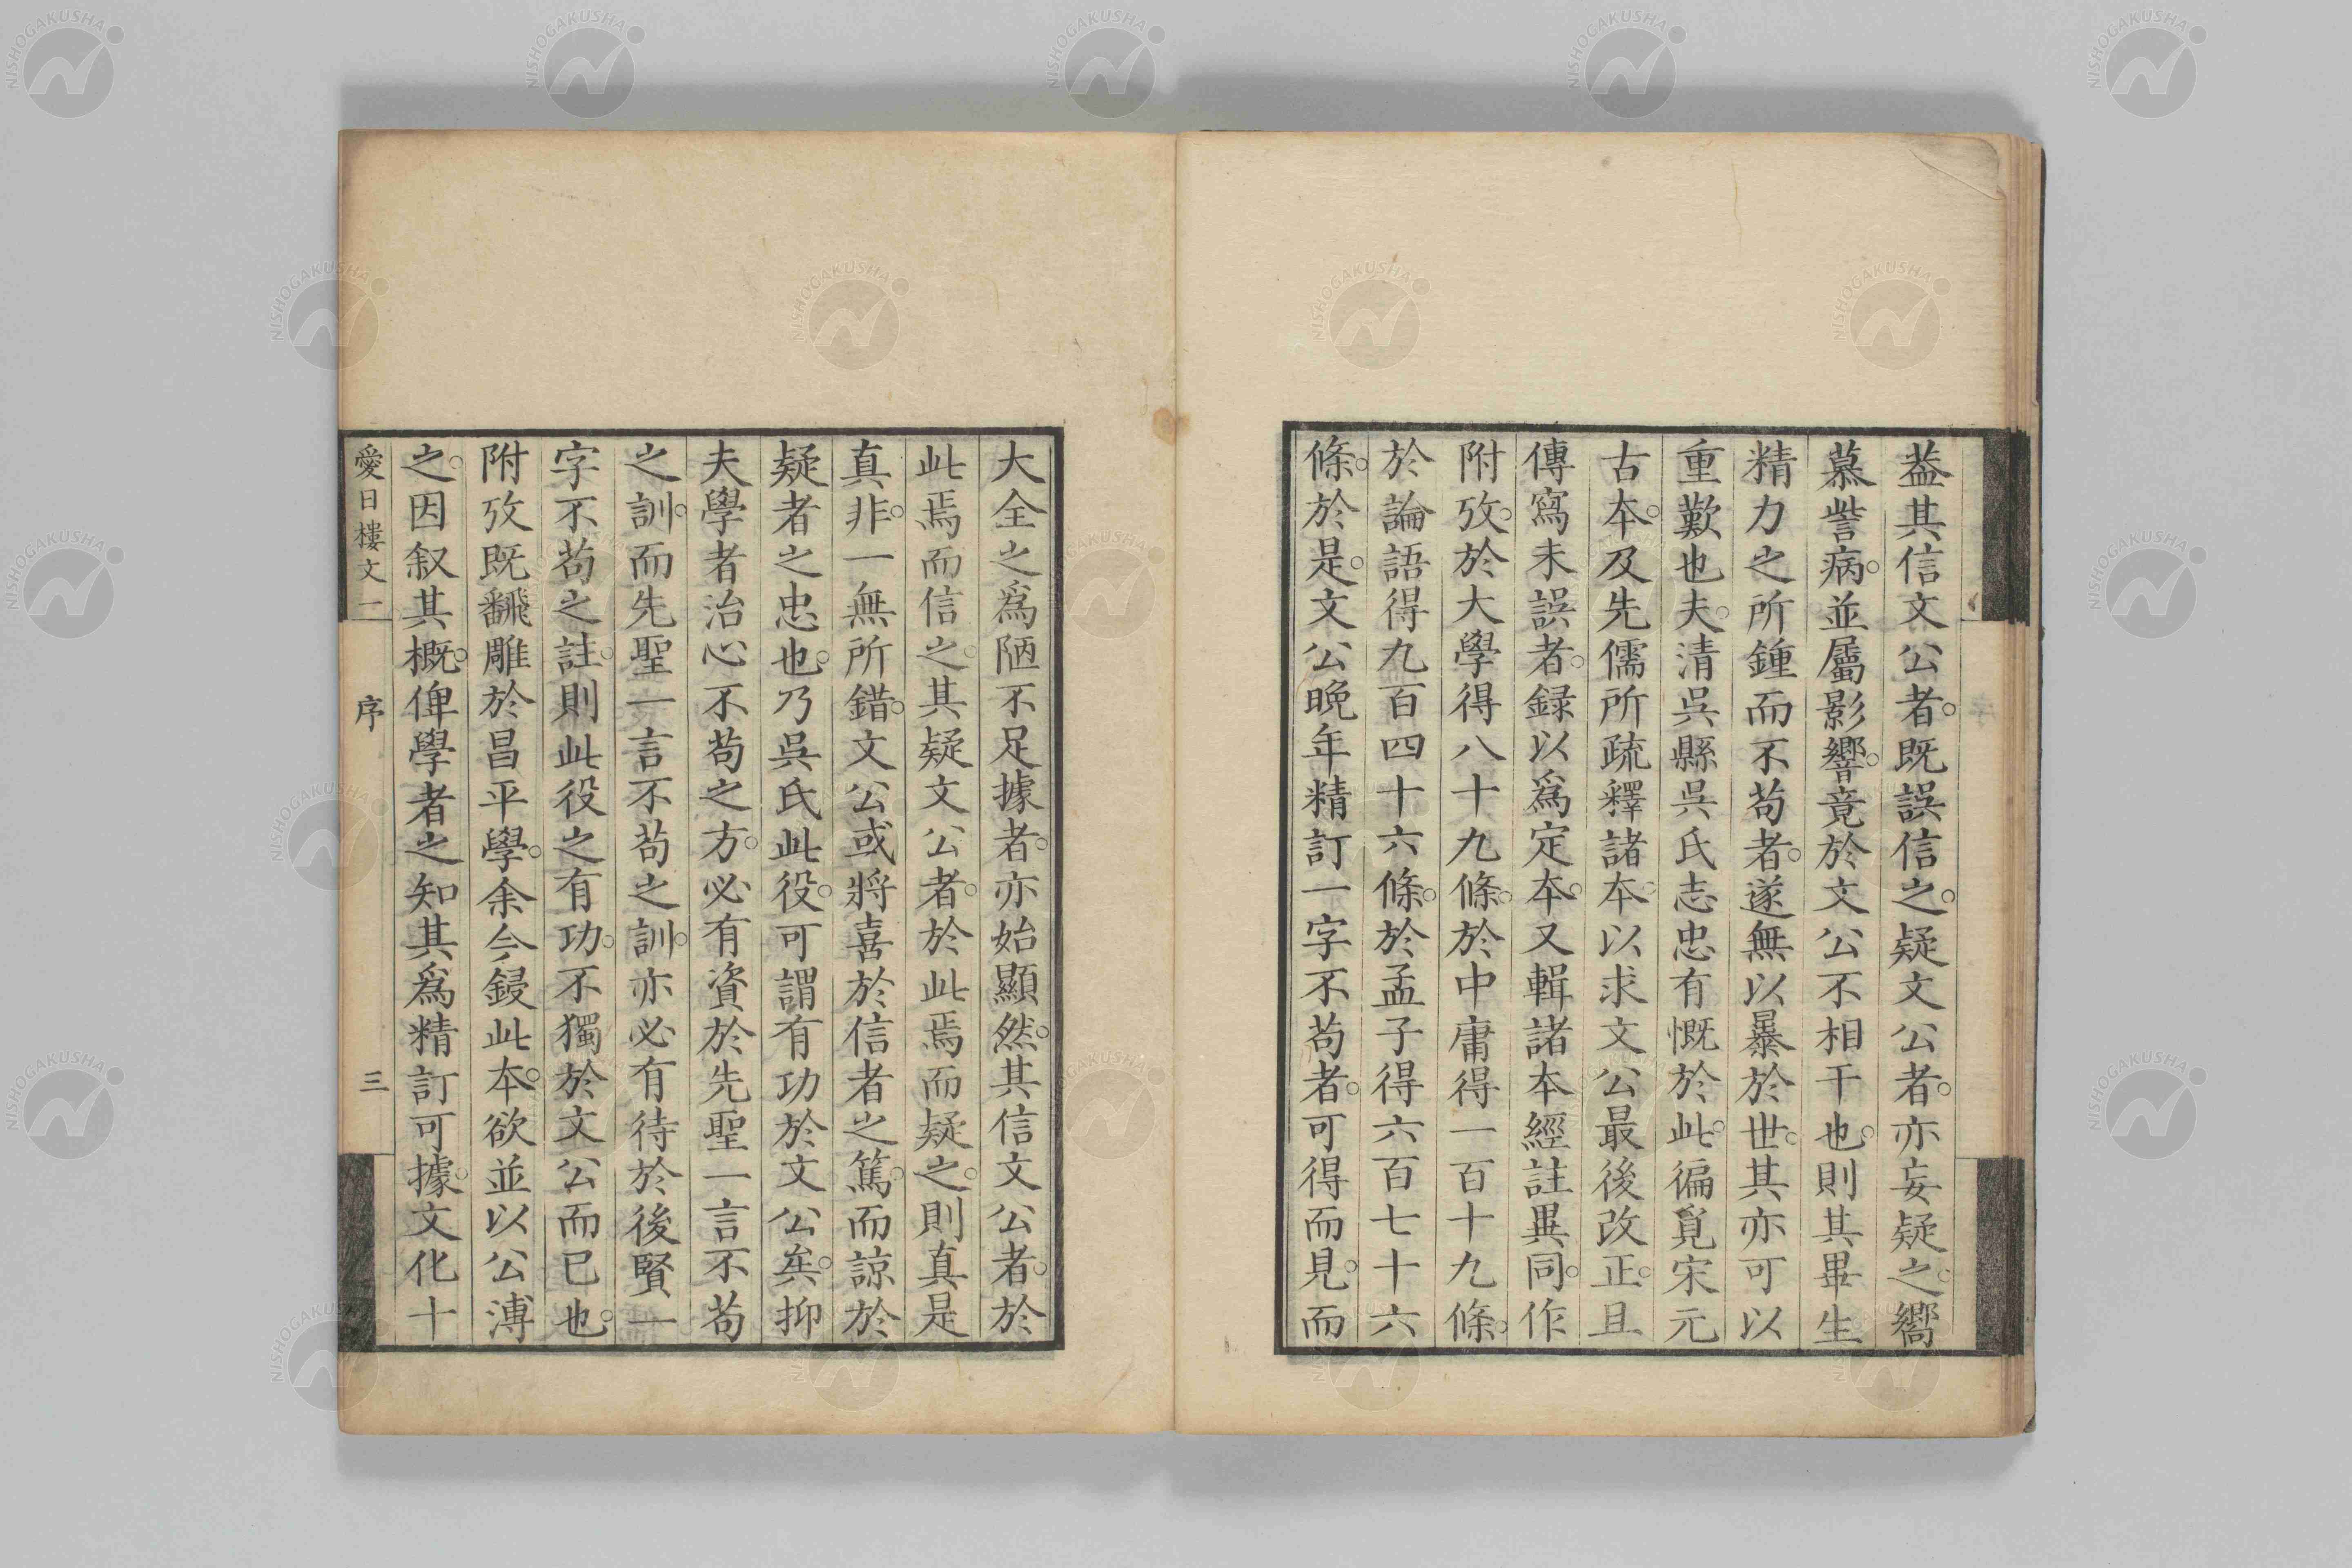 葢其信文公者。既誤信之。疑文公者。亦妄疑之。嚮
慕訾病。並屬影響。竟於文公不相干也。則其畢生
精力之所鍾而不苟者。遂無以暴於世。其亦可以
重歎也。夫清吳縣吳氏志忠有慨於此。徧覓宋元
古本。及先儒所疏釋諸本。以求文公最後改正。且
傳寫未誤者。録以爲定本。又輯諸本經註異同。作
附攷。於大學得八十九條。於中庸得一百十九條。
於論語得九百四十六條。於孟子得六百七十六
條。於是。文公晩年精訂一字不苟者。可得而見。而
大全之爲陋不足據者。亦始顯然。其信文公者。於
此焉而信之。其疑文公者。於此焉而疑之。則真是
真非。一無所錯。文公或將喜於信者之篤。而諒於
疑者之忠也。乃吳氏此役。可謂有功於文公矣。抑
夫學者治心不苟之方。必有資於先聖一言不苟
之訓。而先聖一言不苟之訓。亦必有待於後賢一
字不苟之註。則此役之有功。不獨於文公而已也。
附攷既飜雕於昌平學。余今鋟此本。欲並以公溥
之。因叙其概。俾學者之知其爲精訂可據。文化十
愛日樓文一 序 三
NISHOGAKUSHA